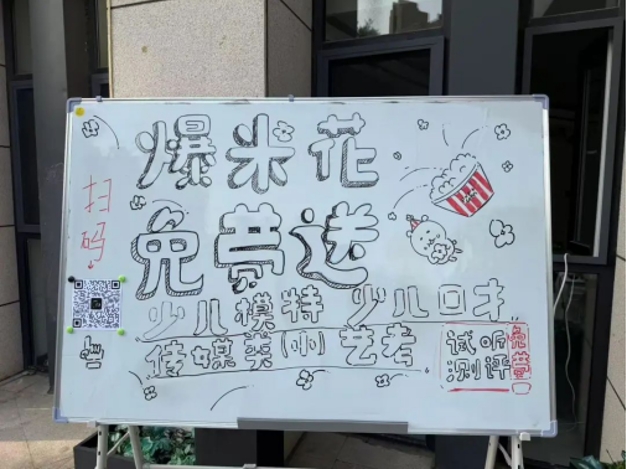 爆米花
免费送
扫码
少儿模特 少儿口才
传媒类(小)艺考
试听
测评
免费